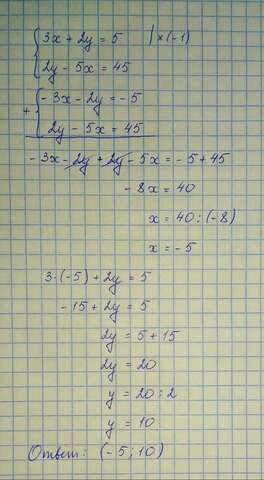 3x + 2y = 5 | × (-1)
2y - 5x = 45
- 3x - 2y = -5
+
2y - 5x = 45
- 3x - 2y + 2y - 5x = -5 + 45
- 8x = 40
x = 40 : (-8)
x = -5
3·(-5) + 2y = 5
- 15 + 2y = 5
2y = 5 + 15
2y = 20
y = 20 : 2
y = 10
Ответ: (-5; 10)